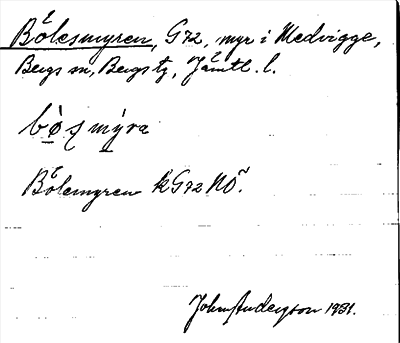 Bölesmyren, G72, myr i Medvigge,
Bergs sn, Bergs tg, Jämtl. l.
bo̠ʂmy̠ra
Bölemyren kG72NÖ.
John Anderzson 1931.